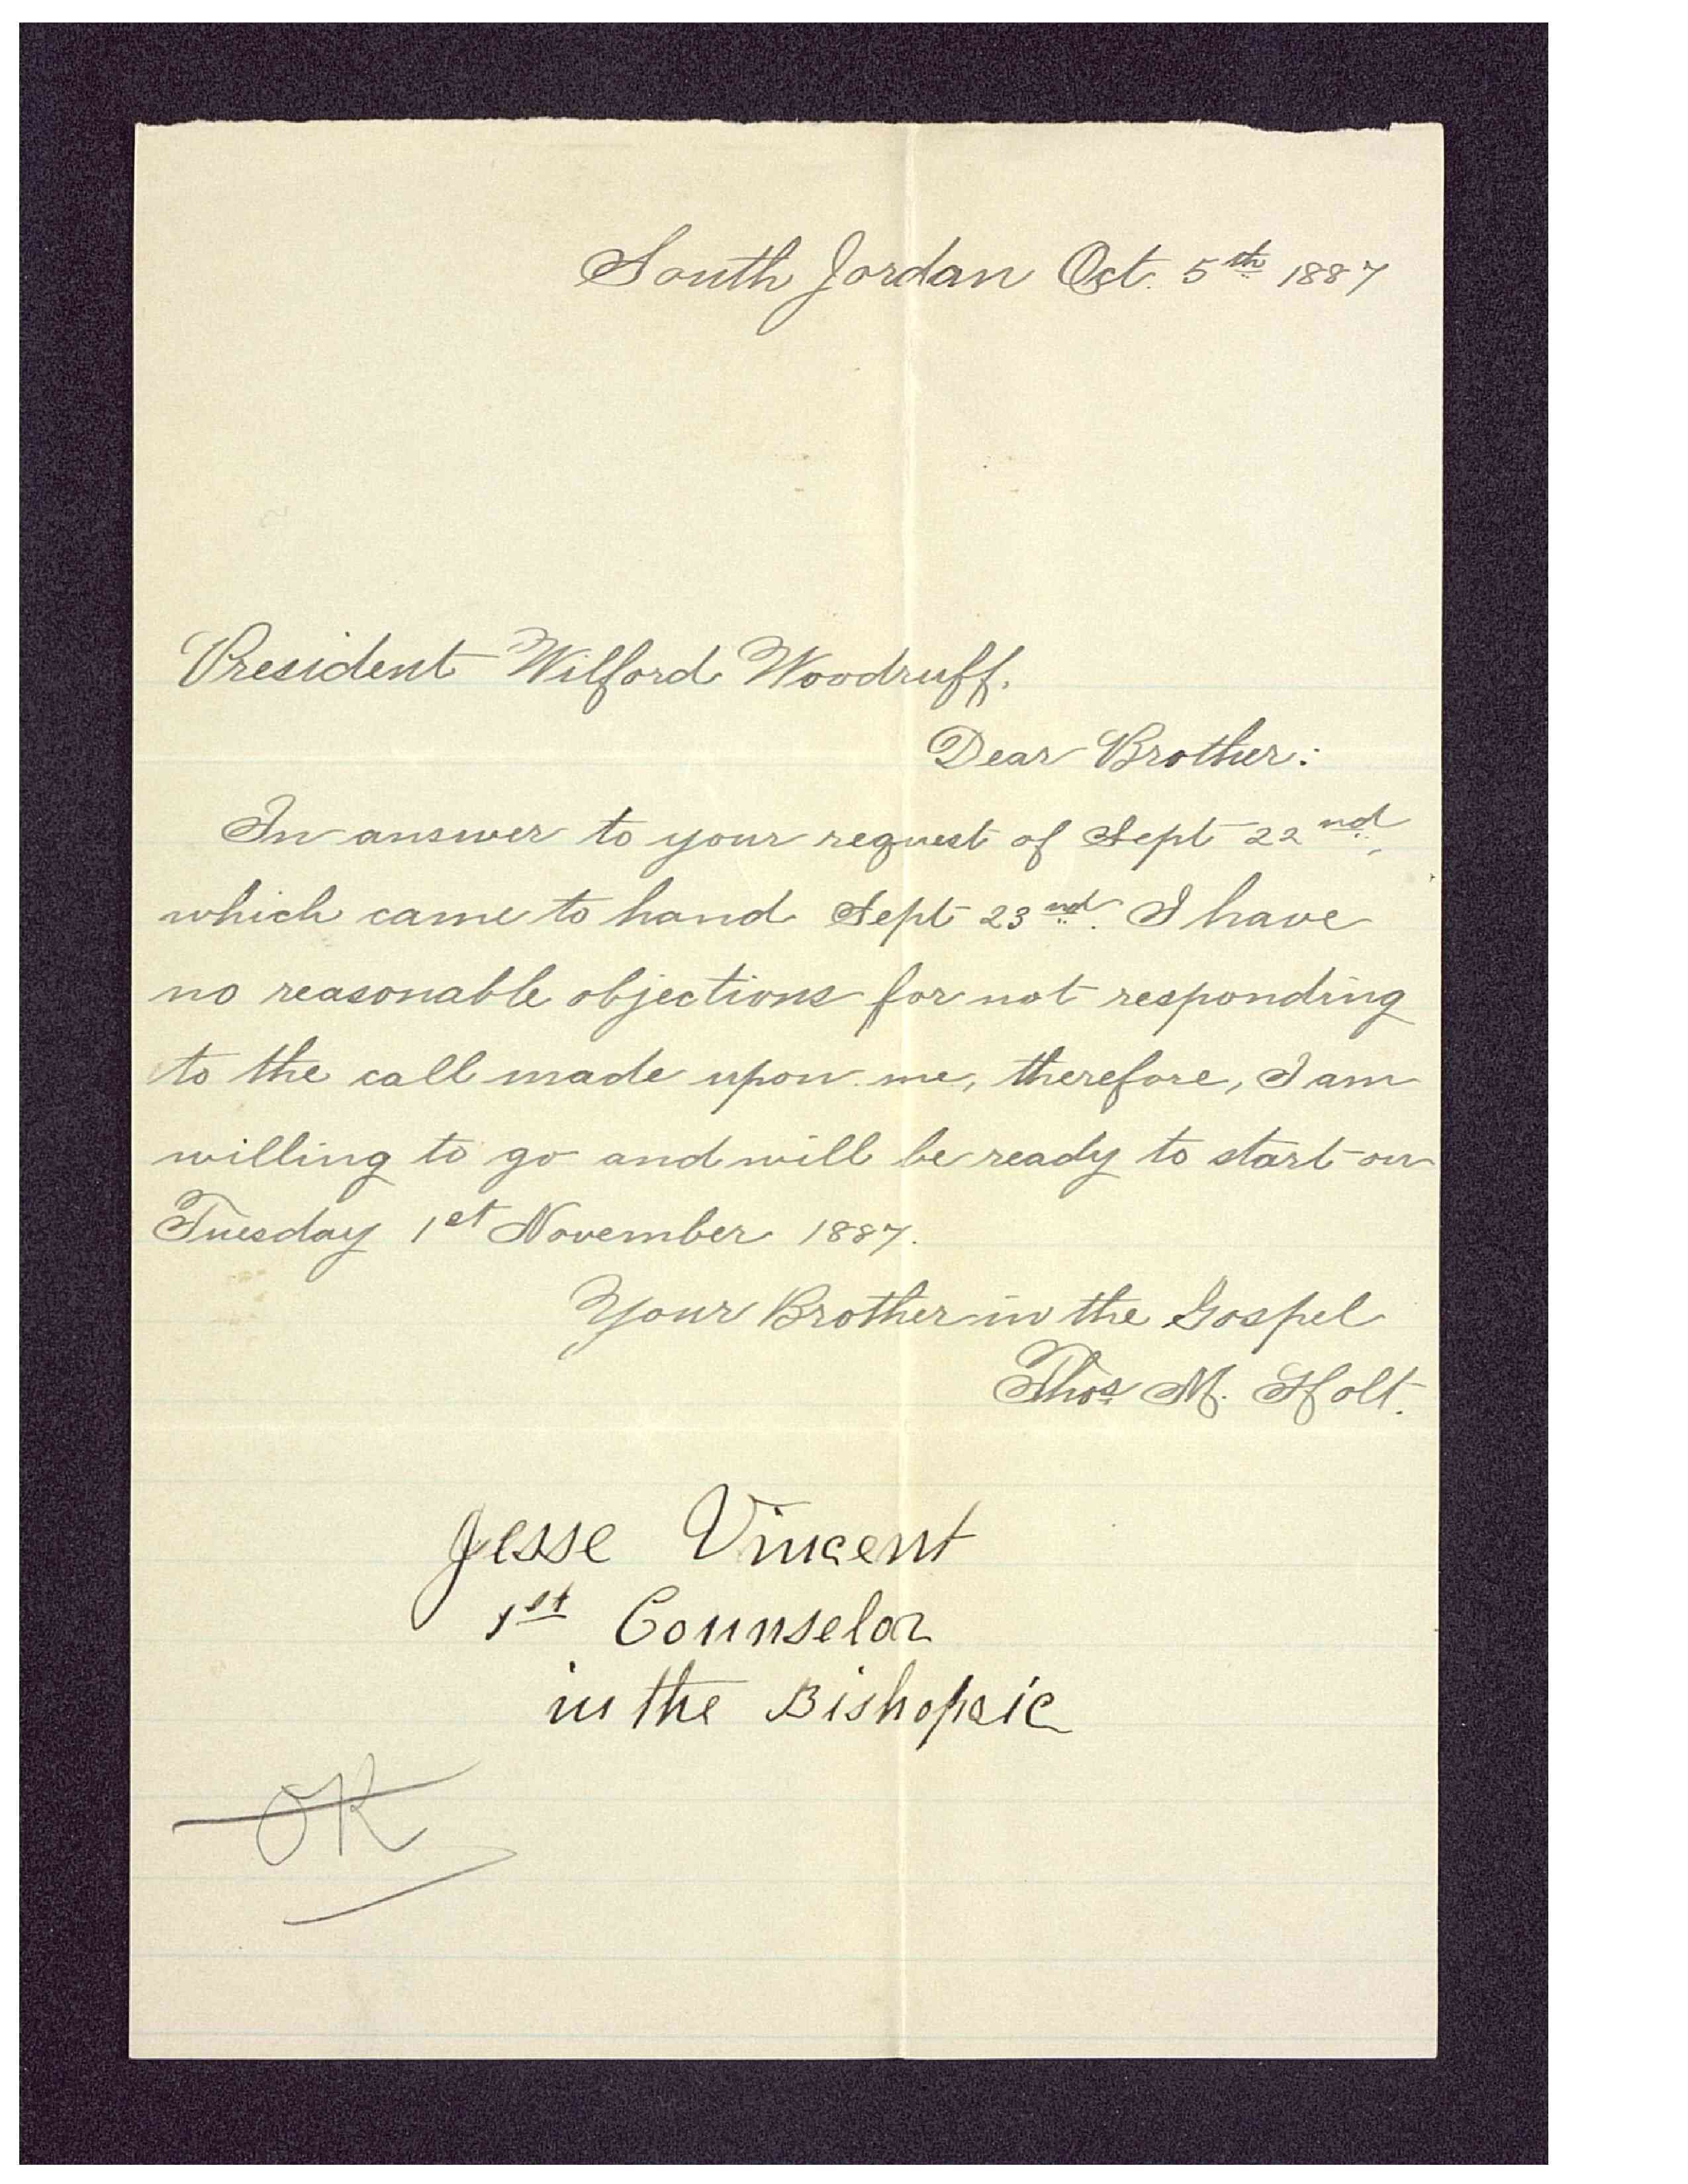 South Jordan Oct. 5th 1887
President Wilford Woodruff.
Dear Brother:
In answer to your request of Sept 22nd,
which came to hand Sept 23nd. I have
no reasonable objections for not responding
to the call made upon me, therefore, I am
willing to go and will be ready to start on
Tuesday 1st November 1887.
Your Brother in the Gospel
Thos M. Holt.
Jesse Vincent
1st Counselor
in the Bishopric
OK